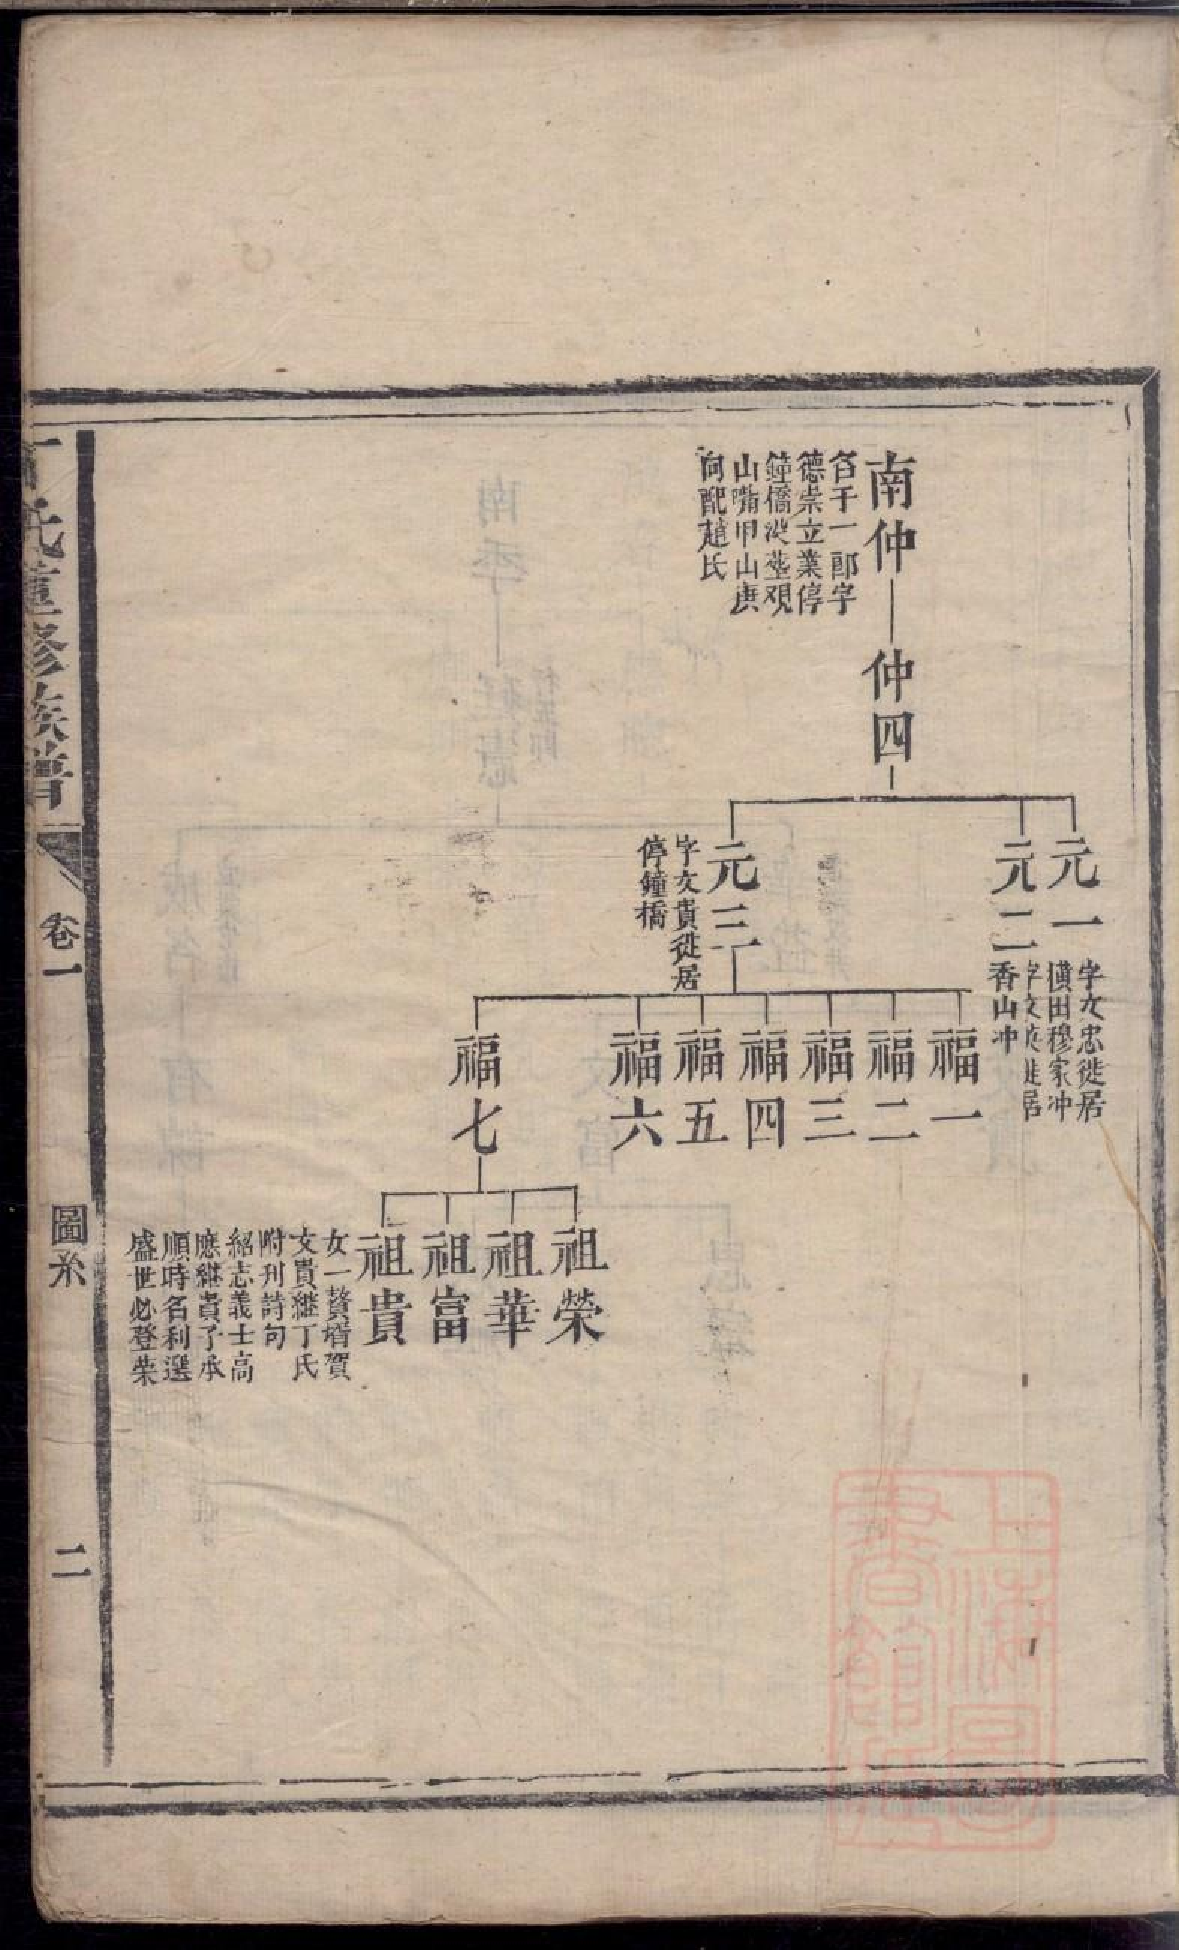 南仲
仲四
于一郎字
德崇立業停
鐘橋
山嘴甲山庚
向配趙氏
元一
字文忠徙居
橫田穆家冲
元二
字文英徙居
香山冲
元三
字文貴徙居
停鐘橋
福一
福二
福三
福四
福五
福六
福七
祖榮
祖華
祖富
祖貴
女一贅壻賀
文貴繼丁氏
附刊詩句
紹志義士高
應繼貴子承
順時名利選
盛世必登荣
丁氏重修族譜
卷一
圖系
二
上海圖書館藏